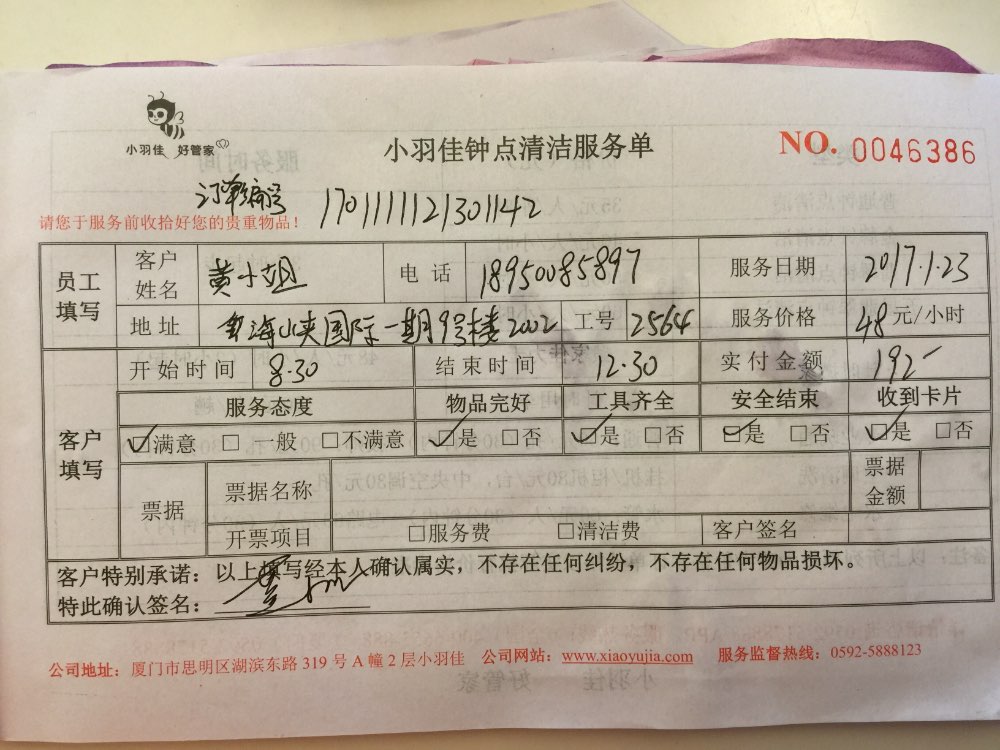 小羽佳 好管家
小羽佳钟点清洁服务单
NO. 0046386
订单编号 1701111121301142
请您于服务前收拾好您的贵重物品！
员工填写 客户姓名 黄小姐 电话 18950085897 服务日期 2017.1.23
地址 海峡国际一期9号楼2002 工号 2564 服务价格 48元/小时
客户填写 开始时间 8.30 结束时间 12.30 实付金额 192-
服务态度 物品完好 工具齐全 安全结束 收到卡片
☑满意 □一般 □不满意 ☑是 □否 ☑是 □否 ☑是 □否 ☑是 □否
票据 票据名称 票据金额
开票项目 □服务费 □清洁费 客户签名
客户特别承诺：以上填写经本人确认属实，不存在任何纠纷，不存在任何物品损坏。
特此确认签名：
公司地址：厦门市思明区湖滨东路 319 号 A 幢 2 层小羽佳 公司网站：www.xiaoyujia.com 服务监督热线：0592-5888123